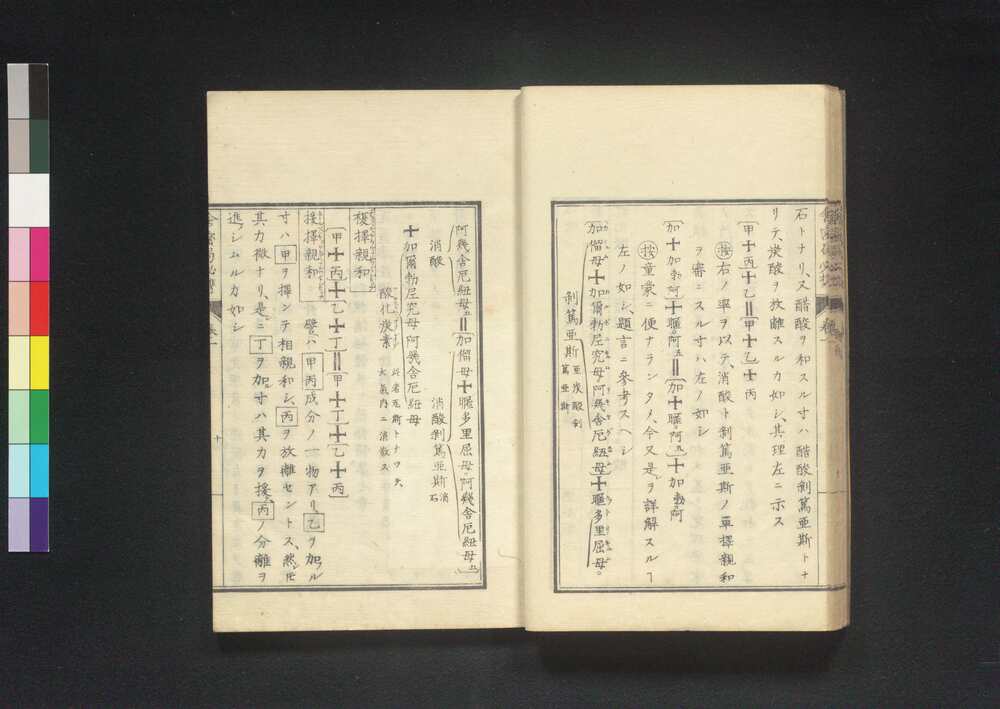 石トナリ、又醋酸ヲ和スル寸ハ醋酸剝篤亜斯トナ
リテ炭酸ヲ放離スルカ如シ、其理左ニ示ス
〔甲十丙十乙‖甲十乙十丙
按右ノ率ヲ以テ、消酸ト剝篤亜斯ノ單擇親和
ヲ審ニスル寸ハ左ノ如シ
〔加十加勃阿〕十䐉阿五‖〔加十䐉阿五〕十加勃阿
按童蒙ニ便ナランタメ、今又是ヲ詳解スルヿ
左ノ如シ、題言ニ參考スヘシ
加𠌫母十加爾勃尼究母阿幾舎厄紐母十䐉多里屈母。
剝篤亜斯 亜炭酸剝篤亜斯
阿幾舎厄紐母五‖〔加𠌫母十䐉多里屈母阿幾舎厄紐母五〕
消酸 消酸剝篤亜斯 消石
十加爾勃尼究母阿幾舎厄紐母
酸化炭素 此者瓦斯トナツテ大氣内ニ消散ス
複擇親和
〔甲十丙十乙十丁‖甲十丁十乙十丙〕
接擇親和。譬ハ甲丙成分ノ一物アリ、乙ヲ加フル
寸ハ甲ヲ擇ンテ相親和シ、丙ヲ放離セントス、然𪜈
其力微ナリ、是ニ丁ヲ加フ寸ハ其力ヲ接ケ丙ノ分離ヲ
進マシムルカ如シ